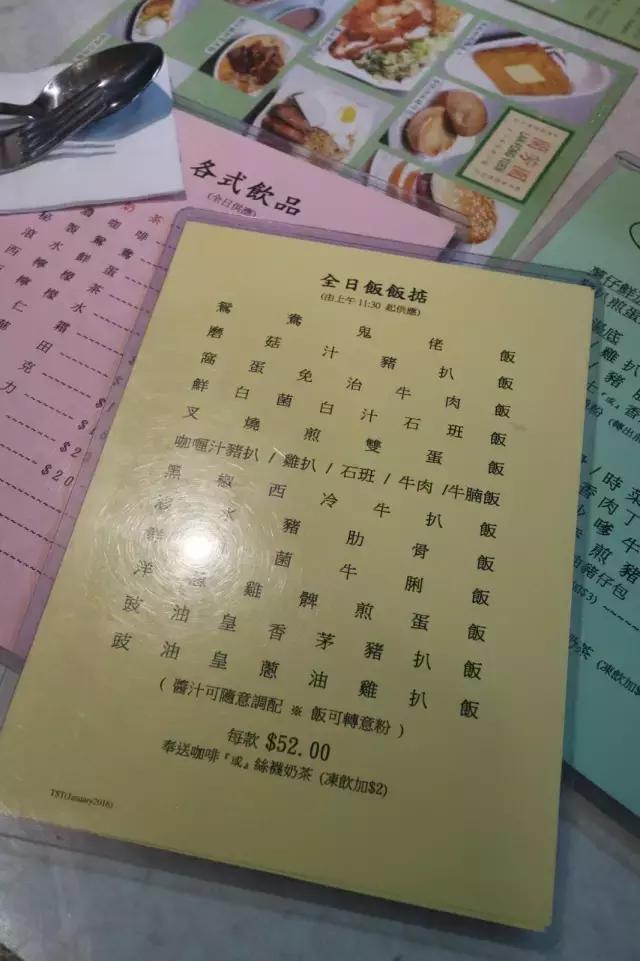 各式飲品
(全日供應)
全日飯飯掂
(由上午11:30 起供應)
鴛鴦鬼佬飯
磨菇汁豬扒飯
窩蛋免治牛肉飯
鮮白菌白汁石班飯
叉燒煎雙蛋飯
咖喱汁豬扒 / 雞扒 / 石班 / 牛肉 / 牛腩飯
黑椒西冷牛扒飯
水豬肋骨飯
鮮菌牛脷飯
洋蔥雞髀煎蛋飯
豉油皇香茅豬扒飯
豉油皇蔥油雞扒飯
( 醬汁可隨意調配 ※ 飯可轉意粉 )
每款 $52.00
奉送咖啡『或』絲襪奶茶 (凍飲加$2)
TST(January2016)
$20
時菜
香肉丁
嗲牛
煎豬
豬仔包
(凍飲加$